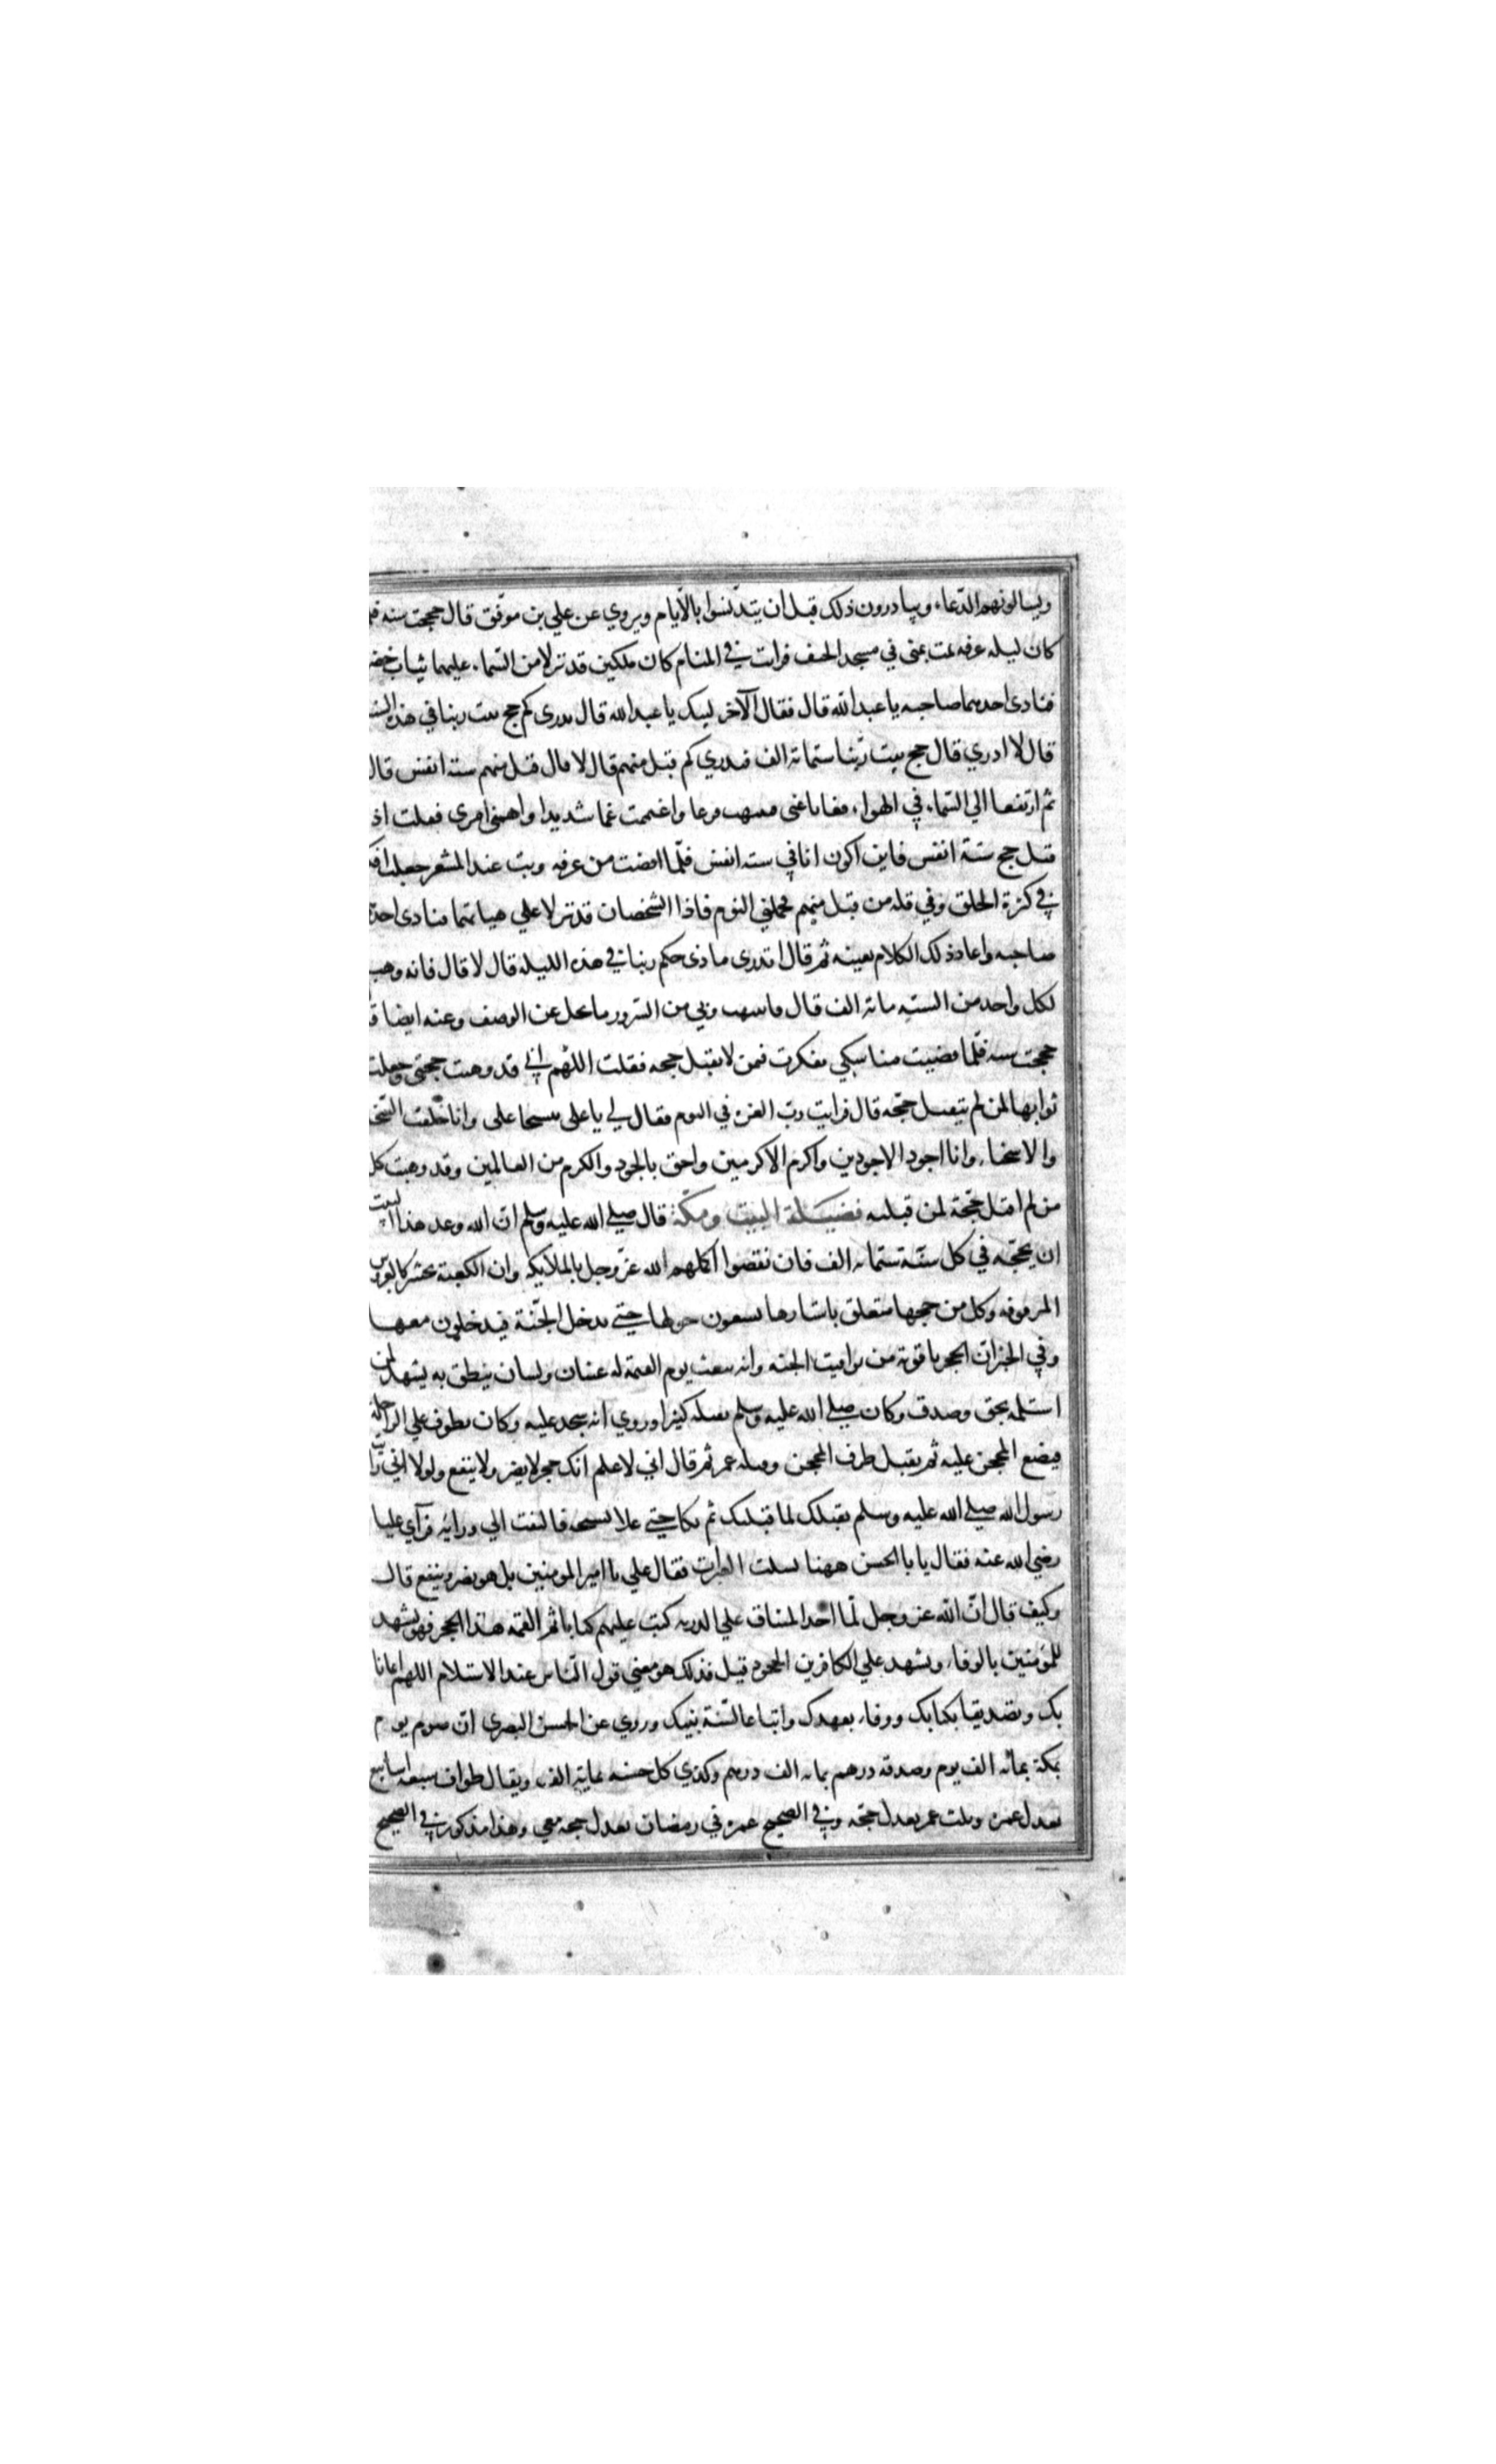 ويسالونهم الدّعاء ويبادرون ذلك قبل ان يتدنّسوا بالآيام ويروي عن علي بن موفّق قال حججت سنه
كان ليله عرفه نمت بمنى في مسجد الخيف فرات في المنام كان ملكين قد نزلا من السّماء عليهما ثياب خضر
فنادى احدهما صاحبه يا عبد الله قال فقال الآخر لبيك يا عبد الله قال تدرى كم حج بيت ربنا في هذه السنه
قال لا ادري قال حج بيت ربّنا ستمائة الف فتدري كم قبل منهم قال لا قال قبل منهم سته انفس قال
ثم ارتفعا الي السّماء في الهواء فغابا عنى فانتبهت فزعا واغتممت غما شديدا واهمنى امرى فقلت اذ
قبل حج ستة انفس فاين اكون انا في سته انفس فلّما افضت من عرفه وبت عند المشعر جعلت افكر
في كثرة الخلق وفي قله من قبل منهم فحملني النوم فاذا الشخصان قد نزلا علي هياتهما فنادى احد
صاحبه واعاد ذلك الكلام بعينه ثم قال اتدرى ماذى حكم ربنا في هذه الليله قال لا قال فانه وهب
لكل واحد من السته مائة الف قال فانتبهت وبي من السّرور ما يجل عن الوصف وعنه ايضا
حججت سنه فلّما قضيت مناسكي تفكرت فمن لا يقبل حجه فقلت اللّهم اني قد وهبت حجتى وجعلت
ثوابها لمن لم يتقبل حجّه قال فرايت ربّ العزه في النوم فقال لي يا علي تتسخا علي وانا خلقت السّخا
والاسخياء وانا اجود الاجودين واكرم الاكرمين واحق بالجود والكرم من العالمين وقد وهبت كل
من لم اقبل حجّة لمن قبلته فضيلة البيت ومكّة قال صلي الله عليه وسلم انّ الله وعد هذا البيت
ان يحجّه في كل سنّة ستمائه الف فان نقصوا اكملهم الله عزّ وجل بالملايكه وان الكعبة تحشر كالعروس
المزفوفه وكل من حجها متعلق باستارها يسعون حولها حتي تدخل الجنّة فيدخلون معها
وفي الخبر انّ الحجر ياقوتة من يواقيت الجنه وانه يبعث يوم القيمة له عينان ولسان ينطق به يشهد لمن
استلمه بحق وصدق وكان صلي الله عليه وسلم يقبله كثيرا وروي انه سجد عليه وكان يطوف علي الراحلة
فيضع المحجن عليه ثم يقبل طرف المحجن وقبله عمر ثم قال اني لاعلم انك حجر لا يضر ولا ينفع ولولا اني رّا
رسول الله صلي الله عليه وسلم يقبلك لما قبلتك ثم بكا حتي علا نشيجه فالتفت الي ورائه فرآي عليا
رضي الله عنه فقال يا با الحسن ههنا تسكب العبرات فقال علي يا امير المومنين بل هو يضر وينفع قال
وكيف قال انّ الله عز وجل لّما اخد الميثاق علي الذريه كتب عليهم كتابا ثم القمه هذا الحجر فهو يشهد
للمؤمنين بالوفاء ويشهد علي الكافرين بالجحود قيل فذلك هو معني قول النّاس عند الاستلام اللهم ايمانا
بك وتصديقا بكتابك ووفاء بعهدك واتباعا لسّنة نبيك وروي عن الحسن البصرى انّ صوم يوم
بمكة بمائه الف يوم وصدقه درهم بمائه الف درهم وكذي كل حسنه بماية الف ويقال طواف سبعه اسابيع
يعدل عمره وثلث عمر يعدل حجّه وفي الصحيح عمره في رمضان يعدل حجه معي وهذا مذكور في الصحيح